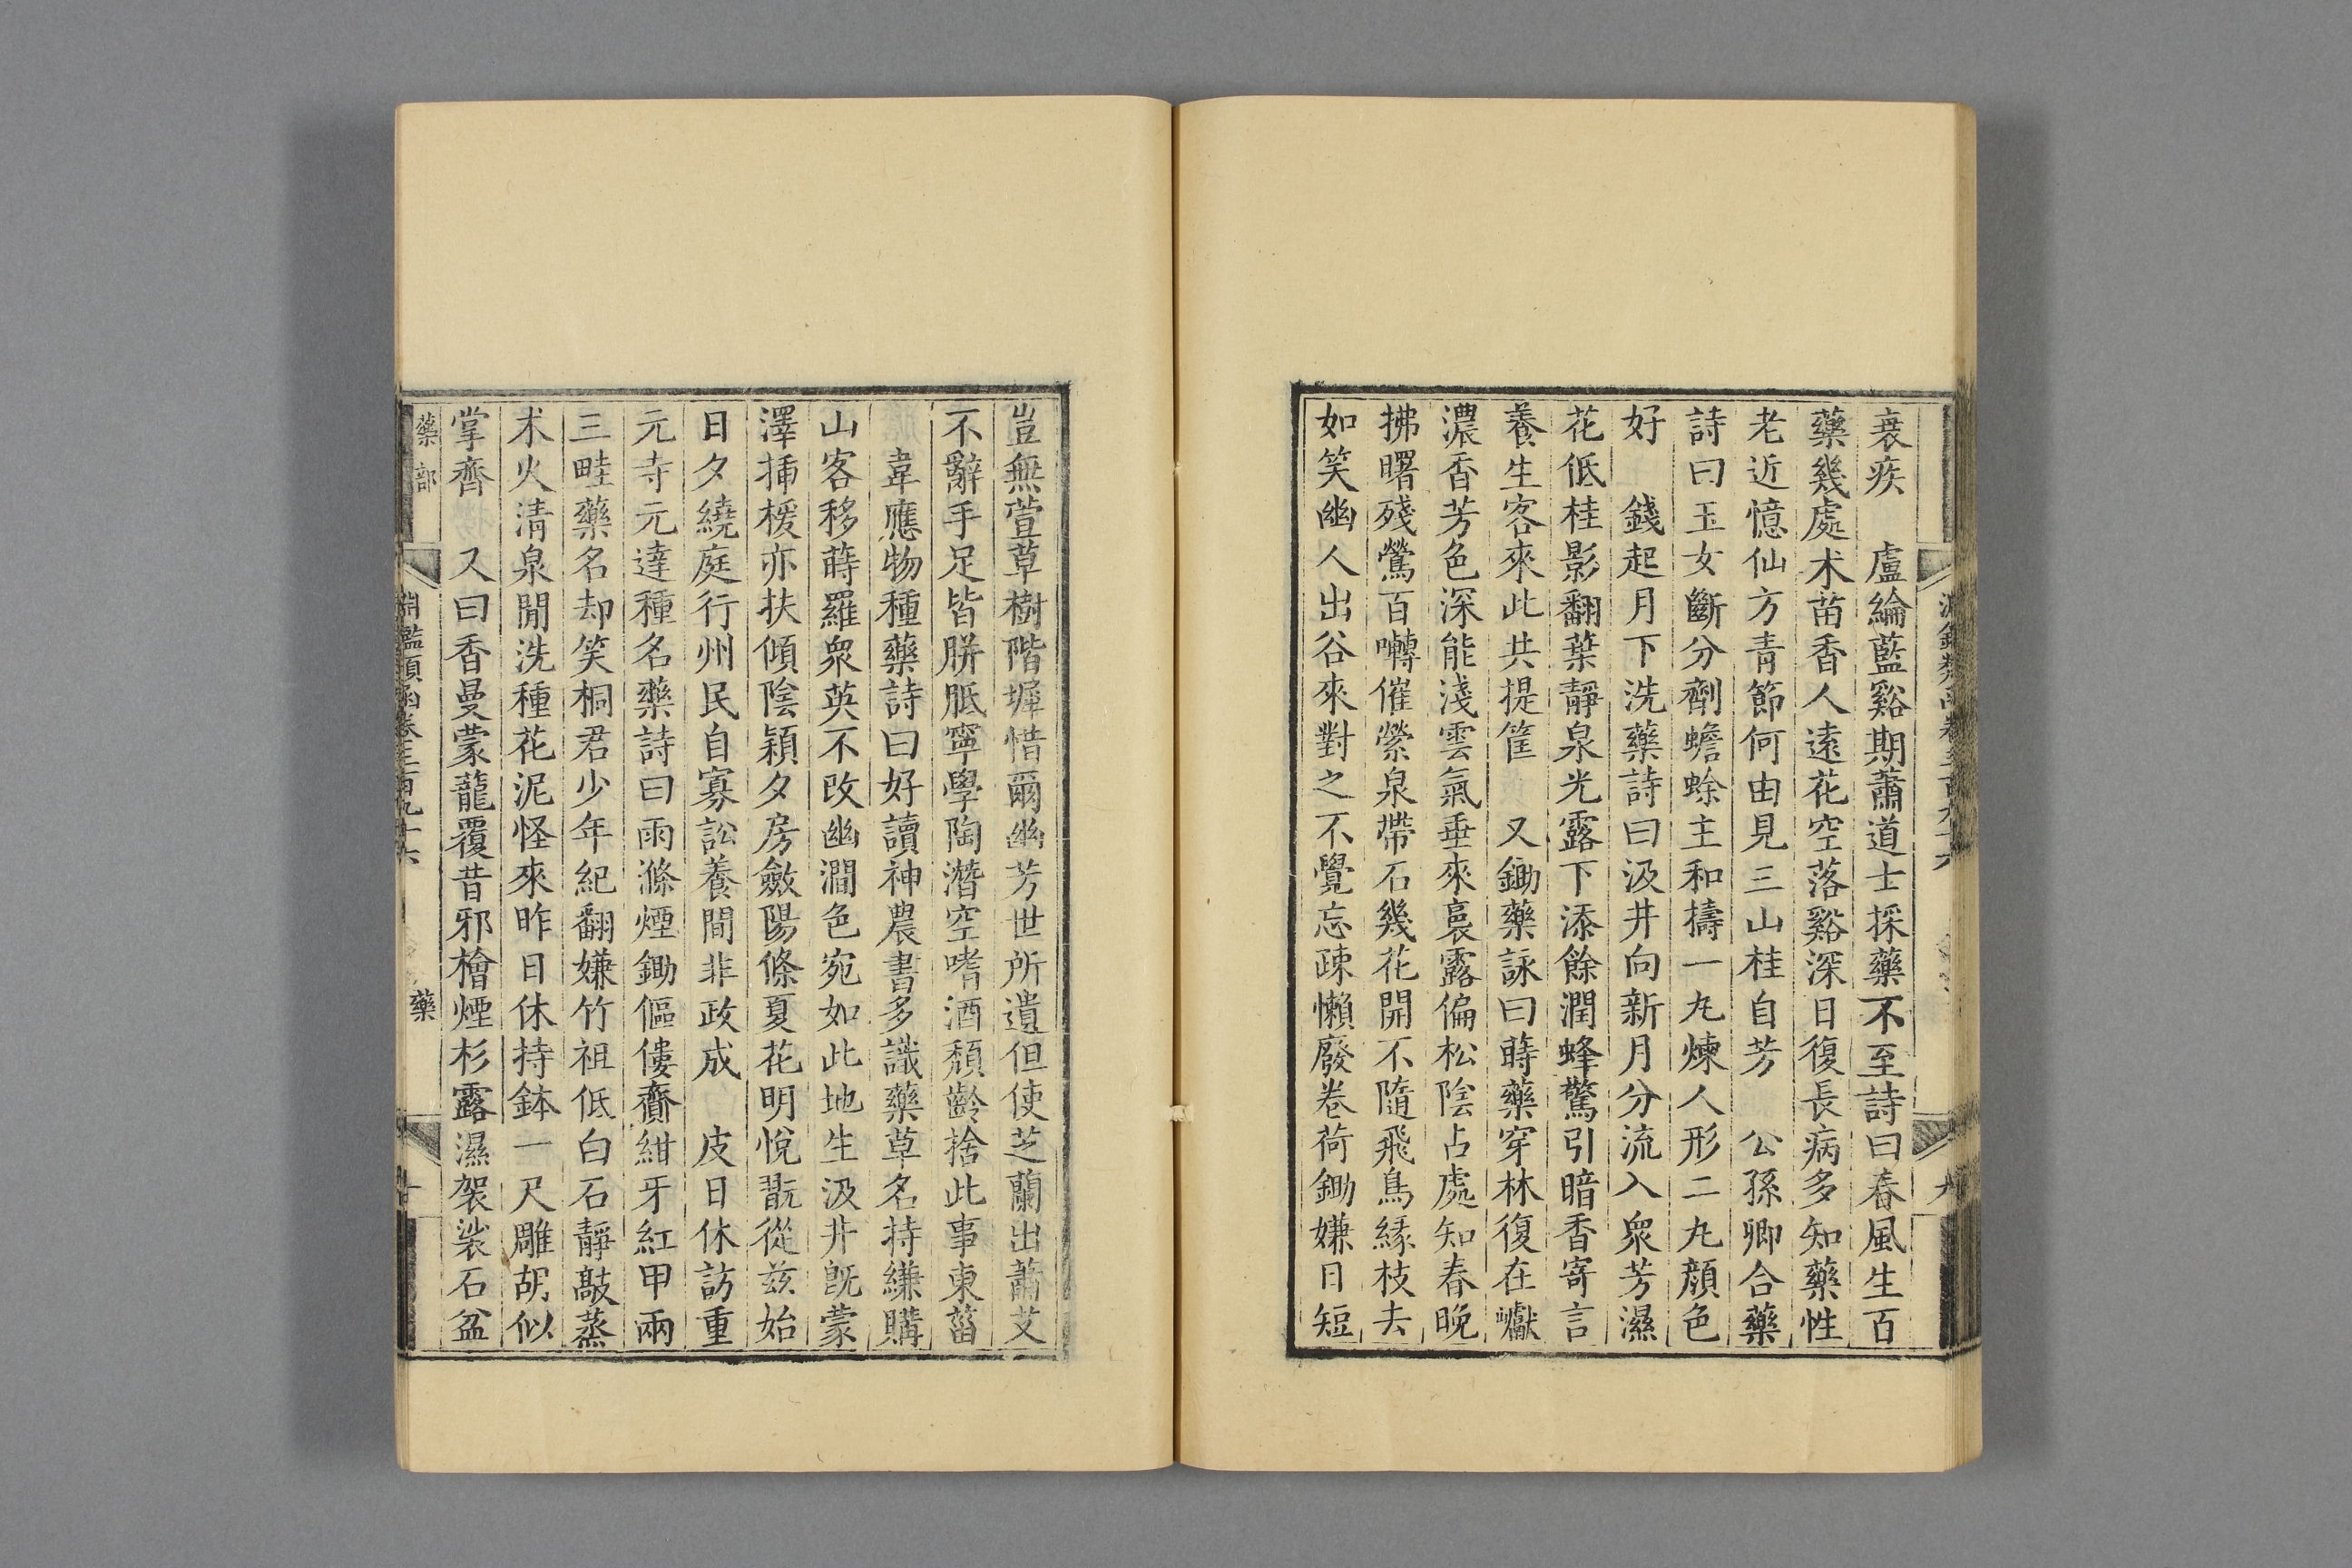 衰疾　盧綸藍谿期蕭道士採藥不至詩曰春風生百
藥幾處术苗香人遠花空落谿深日復長病多知藥性
老近憶仙方青節何由見三山桂自芳　公孫卿合藥
詩曰玉女斷分劑蟾蜍主和擣一丸煉人形二丸顏色
好　錢起月下洗藥詩曰汲井向新月分流入衆芳濕
花低桂影翻葉靜泉光露下添餘潤蜂驚引暗香寄言
養生客來此共提筐　又鋤藥詠曰蒔藥穿林復在巘
濃香芳色深能淺雲氣垂來裛露偏松陰占處知春晚
拂曙殘鶯百囀催縈泉帶石幾花開不隨飛鳥緣枝去
如笑幽人出谷來對之不覺忘疎懶廢卷荷鋤嫌日短
豈無萱草樹階墀惜爾幽芳世所遺但使芝蘭出蕭艾
不辭手足皆胼胝寧學陶潛空嗜酒頹齡捨此事東菑
韋應物種藥詩曰好讀神農書多識藥草名持縑購
山客移蒔羅衆英不改幽澗色宛如此地生汲井旣蒙
澤揷楥亦扶傾陰穎夕房斂陽條夏花明悅翫從兹始
日夕繞庭行州民自寡訟養閒非政成　皮日休訪重
元寺元達種名藥詩曰雨滌煙鋤傴僂齎紺牙紅甲兩
三畦藥名却笑桐君少年紀翻嫌竹祖低白石靜敲蒸
术火清泉閒洗種花泥怪來昨日休持鉢一尺雕胡似
掌齊　又曰香曼蒙蘢覆昔邪檜煙杉露濕袈裟石盆
藥部　淵鑑類函卷三百九十六　藥